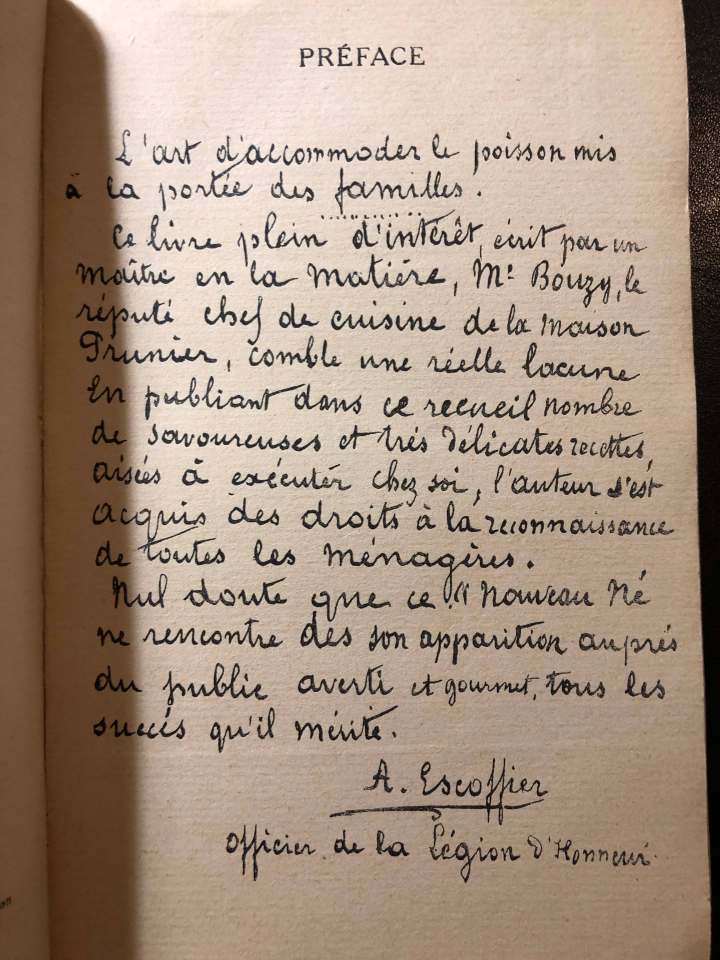 PRÉFACE
L'art d'accommoder le poisson mis
à la portée des familles.
Ce livre plein d'intérêt, écrit par un
maître en la matière, Mr Bouzy, le
réputé chef de cuisine de la maison
Prunier, comble une réelle lacune
En publiant dans ce recueil nombre
de savoureuses et très délicates recettes,
aisées à exécuter chez soi, l'auteur s'est
acquis des droits à la reconnaissance
de toutes les ménagères.
Nul doute que ce " Nouveau Né
ne rencontre dès son apparition auprès
du public averti et gourmet, tous les
succès qu'il mérite.
A. Escoffier
Officier de la Légion d'Honneur